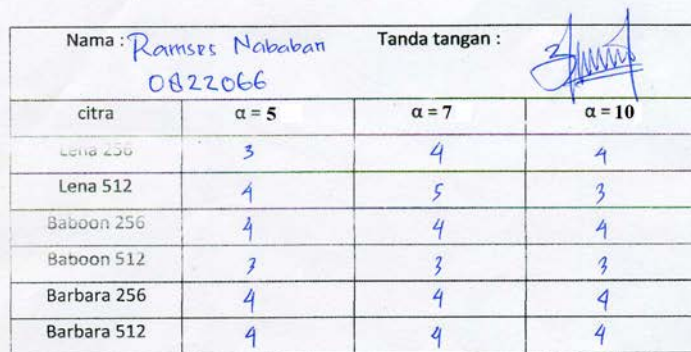 Nama : Ramses Nababan Tanda tangan :
0822066
citra α = 5 α = 7 α = 10
Lena 256 3 4 4
Lena 512 4 5 3
Baboon 256 4 4 4
Baboon 512 3 3 3
Barbara 256 4 4 4
Barbara 512 4 4 4